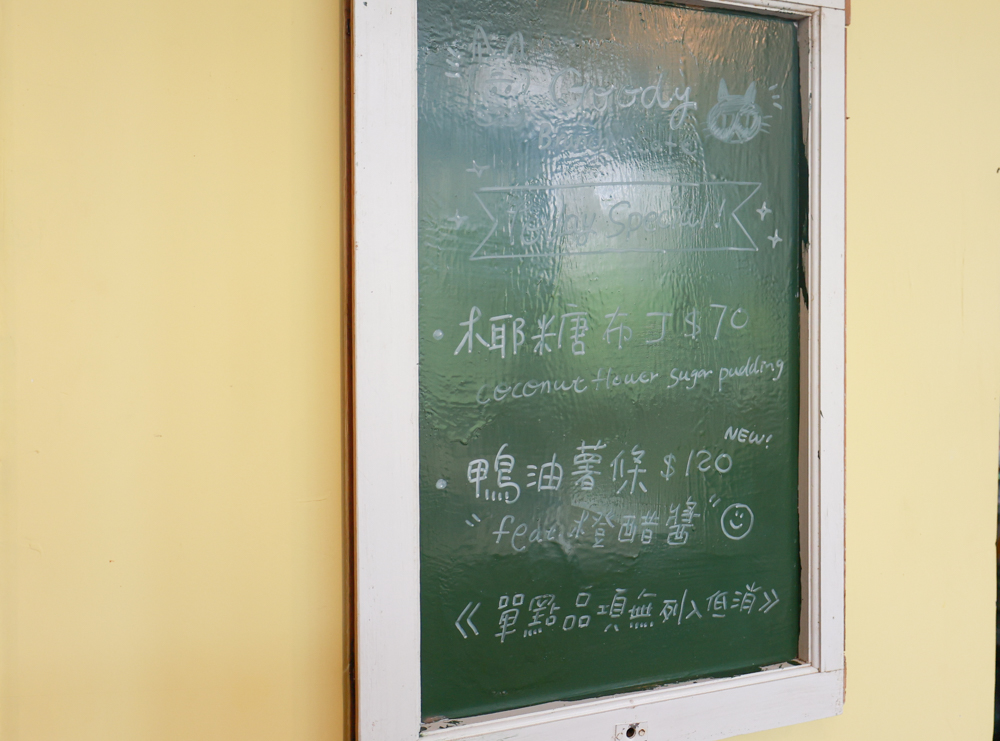 Goody
Special!
• 椰糖布丁 $70
coconut flower sugar pudding
NEW!
• 鴨油薯條 $120
"feat. 橙醋醬"
《單點品項無列入低消》